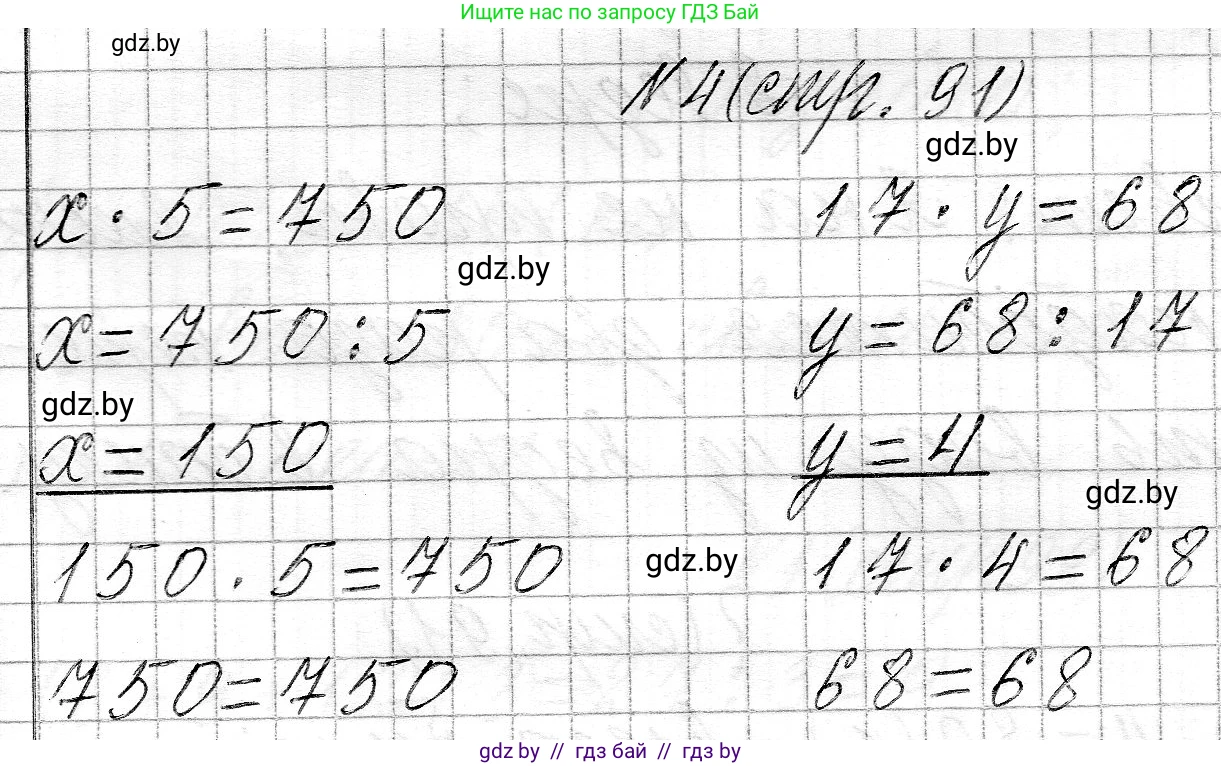 Ищите нас по запросу ГДЗ Бай
gdz.by
N 4 (стр. 91)
gdz.by
x · 5 = 750 17 · y = 68
gdz.by
x = 750 : 5 y = 68 : 17
gdz.by
x = 150 y = 4
gdz.by
150 · 5 = 750 gdz.by 17 · 4 = 68
750 = 750 68 = 68
gdz.by // гдз бай // гдз by